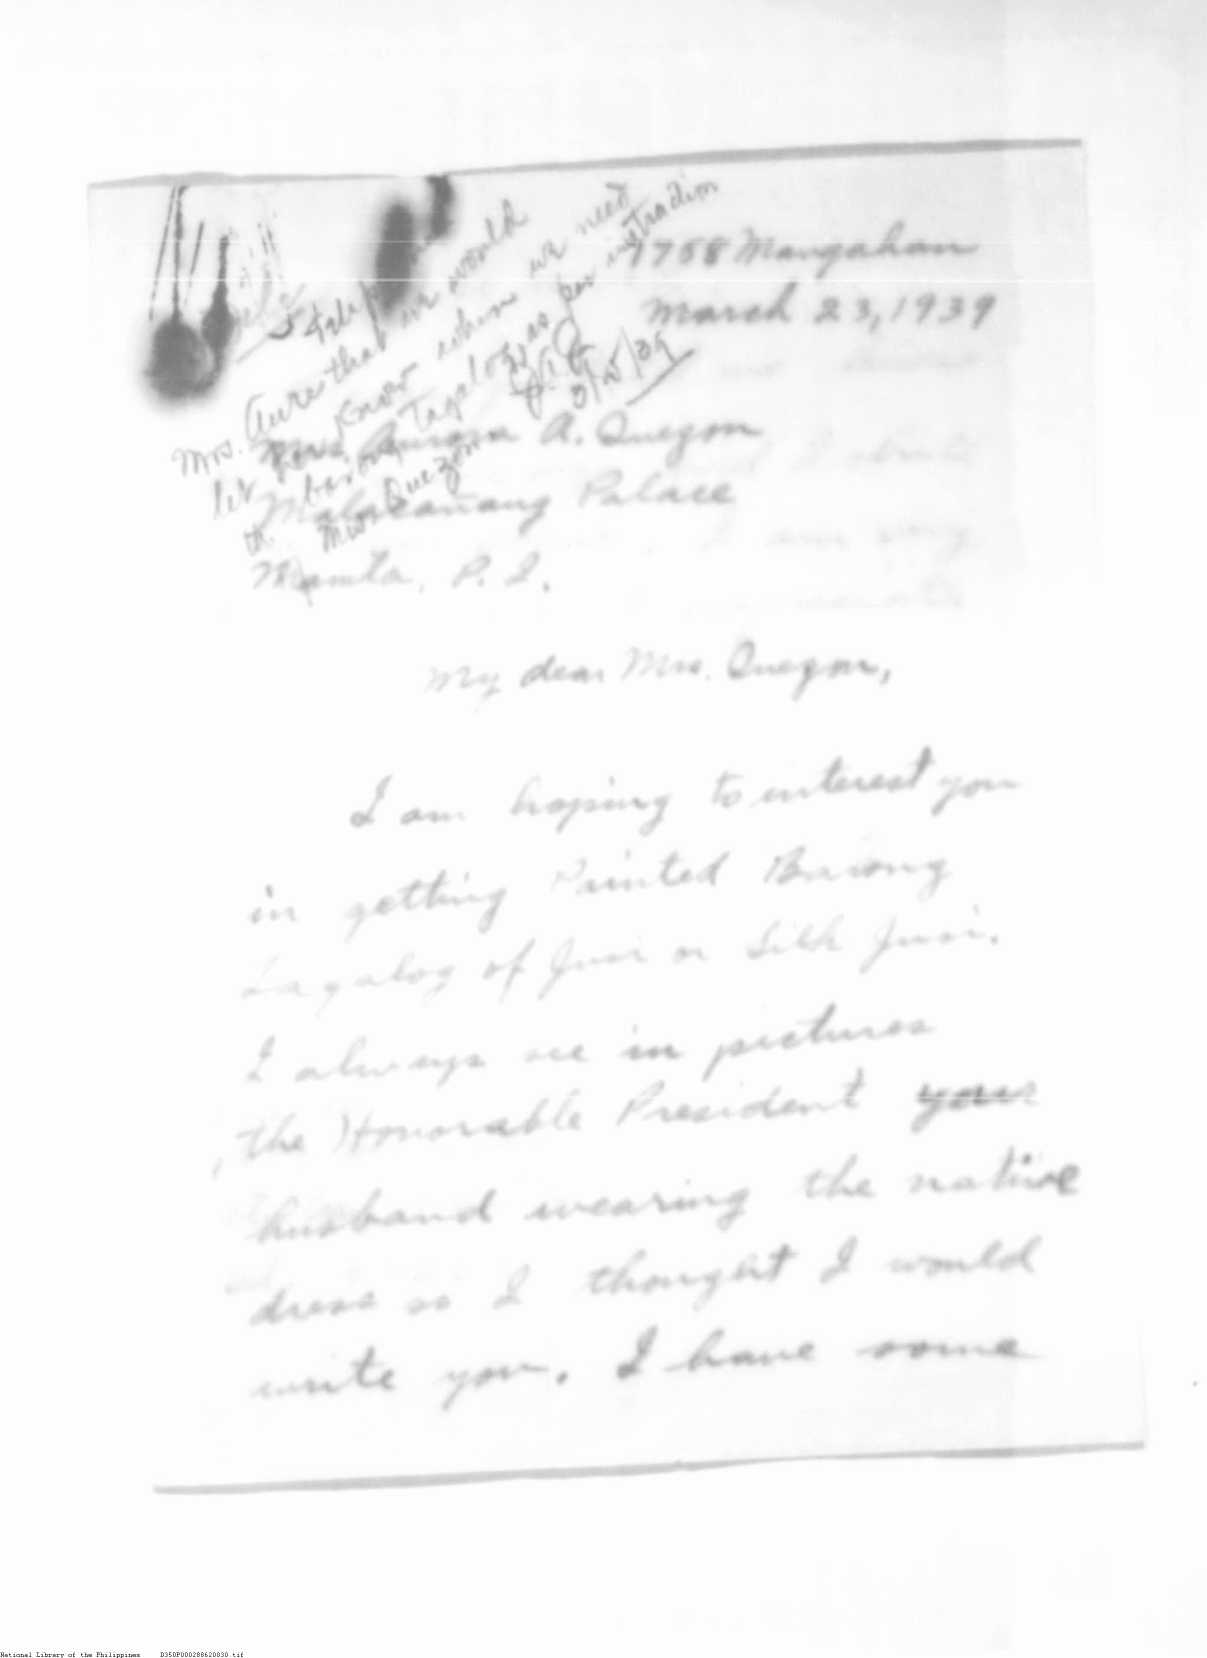 1758 Mangahan
March 23, 1939
Mrs. that we would
let her know when we need
barong Tagalogs as per instruction
Mrs. Quezon
3/25/39
Mrs. Aurora A. Quezon
Malacañang Palace
Manila, P. I.
My dear Mrs. Quezon,
I am hoping to interest you
in getting Painted Barong
Tagalog of Jusi or Silk Jusi.
I always see in pictures
the Honorable President your
husband wearing the native
dress so I thought I would
write you. I have some
National Library of the Philippines D350P000288620830.tif